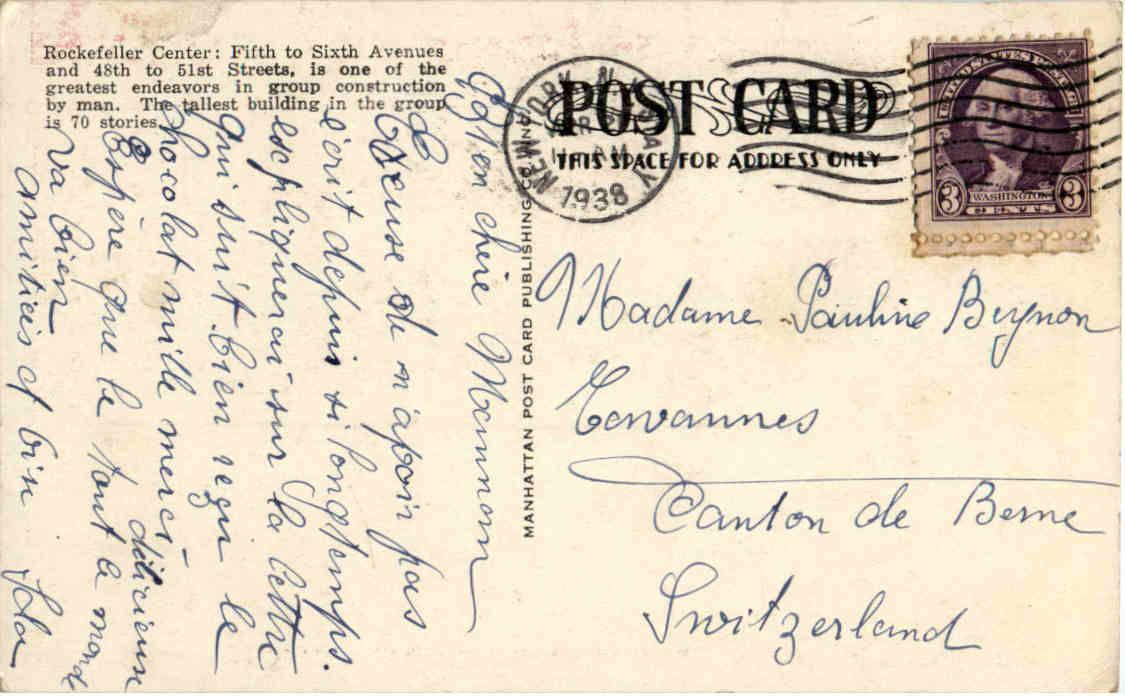 Rockefeller Center: Fifth to Sixth Avenues
and 48th to 51st Streets, is one of the
greatest endeavors in group construction
by man. The tallest building in the group
is 70 stories.
POST CARD
THIS SPACE FOR ADDRESS ONLY
NEW YORK, N.Y.
AM
1938
UNITED STATES POSTAGE
WASHINGTON
3 CENTS 3
MANHATTAN POST CARD PUBLISHING CO.
chère Mamnon
Excuse de n'avoir pas
écrit depuis si longtemps.
espliquerai sur la lettre
qui suit. bien reçu le
chocolat mille merci
délicieux
Espère que le tout le monde
va bien
amitiés et bien
Madame Pauline Beynon
Tavannes
Canton de Berne
Switzerland